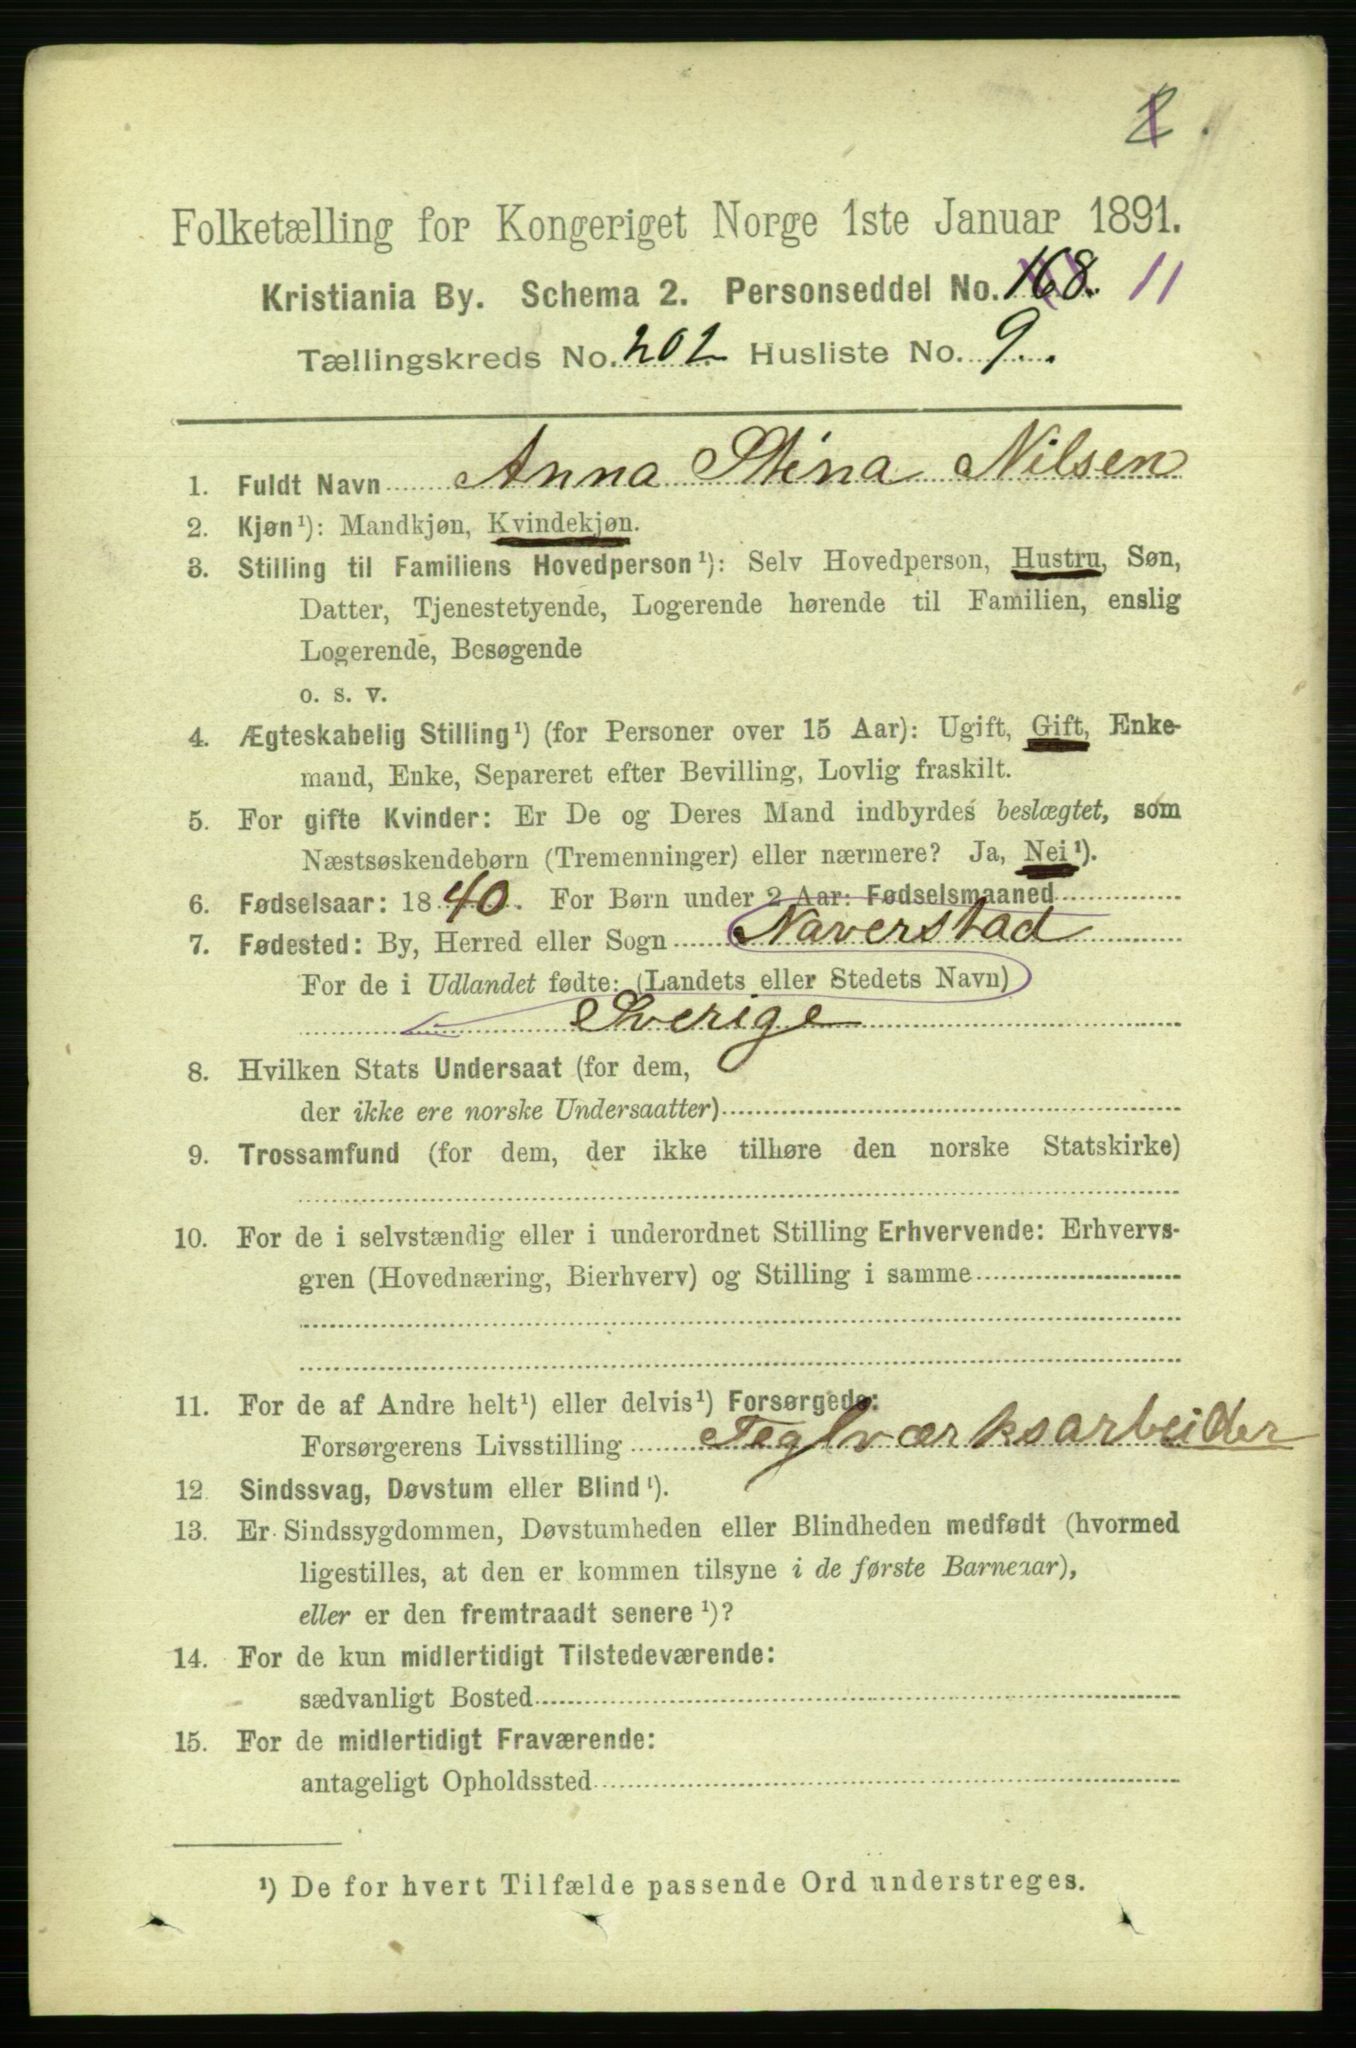 Folketælling for Kongeriget Norge 1ste Januar 1891.
Kristiania By. Schema 2. Personseddel No. 168. 11
Tællingskreds No. 202 Husliste No. 9.
1. Fuldt Navn Anna Stina Nilsen
2. Kjøn¹): Mandkjøn, Kvindekjøn.
3. Stilling til Familiens Hovedperson¹): Selv Hovedperson, Hustru, Søn,
Datter, Tjenestetyende, Logerende hørende til Familien, enslig
Logerende, Besøgende
o. s. v.
4. Ægteskabelig Stilling¹) (for Personer over 15 Aar): Ugift, Gift, Enke-
mand, Enke, Separeret efter Bevilling, Lovlig fraskilt.
5. For gifte Kvinder: Er De og Deres Mand indbyrdes beslægtet, som
Næstsøskendebørn (Tremenninger) eller nærmere? Ja, Nei¹).
6. Fødselsaar: 1840. For Børn under 2 Aar: Fødselsmaaned
7. Fødested: By, Herred eller Sogn Naverstad
For de i Udlandet fødte: (Landets eller Stedets Navn)
Sverige
8. Hvilken Stats Undersaat (for dem,
der ikke ere norske Undersaatter)
9. Trossamfund (for dem, der ikke tilhøre den norske Statskirke)
10. For de i selvstændig eller i underordnet Stilling Erhvervende: Erhvervs-
gren (Hovednæring, Bierhverv) og Stilling i samme
11. For de af Andre helt¹) eller delvis¹) Forsørgede:
Forsørgerens Livsstilling Teglværksarbeider
12. Sindssvag, Døvstum eller Blind¹).
13. Er Sindssygdommen, Døvstumheden eller Blindheden medfødt (hvormed
ligestilles, at den er kommen tilsyne i de første Barneaar),
eller er den fremtraadt senere¹)?
14. For de kun midlertidigt Tilstedeværende:
sædvanligt Bosted
15. For de midlertidigt Fraværende:
antageligt Opholdssted
¹) De for hvert Tilfælde passende Ord understreges.